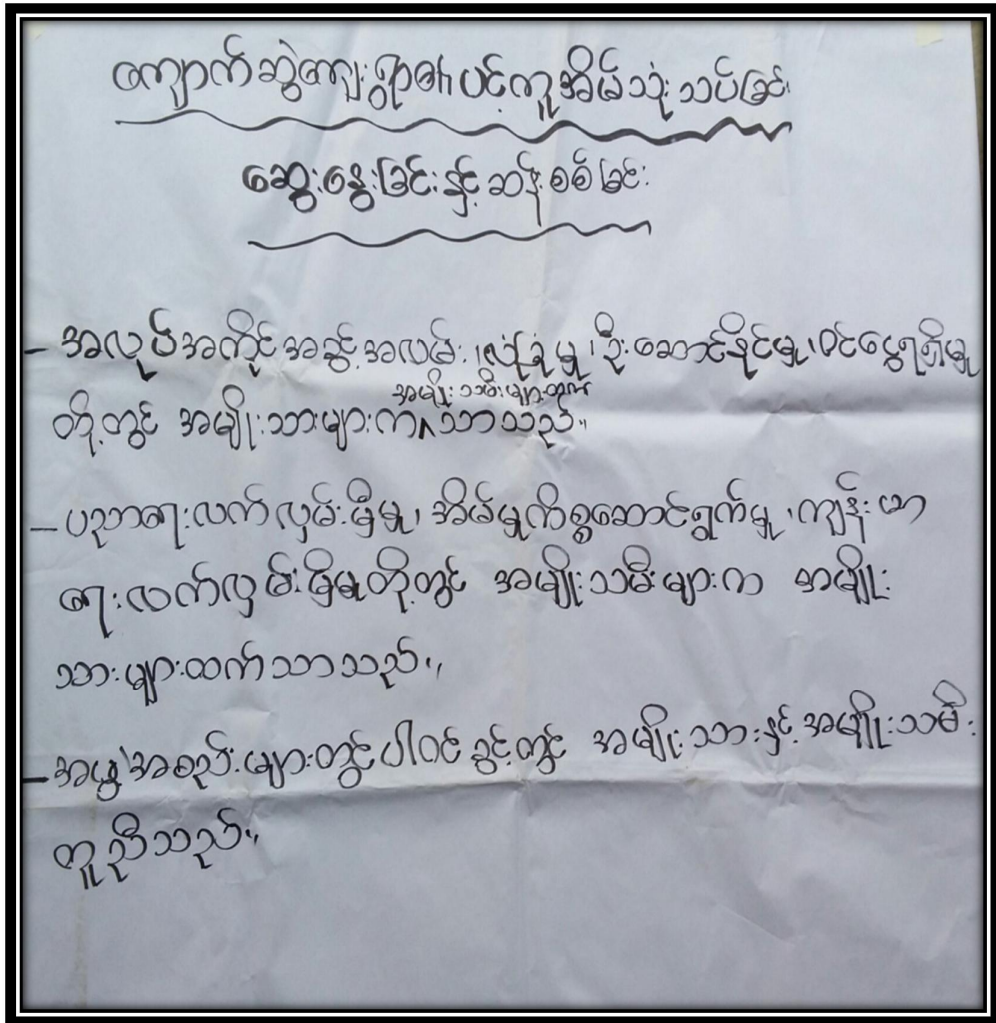 ကျောက်ဆွဲကျေးရွာ၏ ပင့်ကူအိမ်သုံးသပ်ခြင်း
ဆွေးနွေးခြင်းနှင့် ဆန်းစစ်ခြင်း
- အလုပ်အကိုင်အခွင့်အလမ်း၊ လုံခြုံမှု၊ ဦးဆောင်နိုင်မှု၊ ဝင်ငွေရရှိမှု
အမျိုးသမီးများထက်
တို့တွင် အမျိုးသားများက ^ သာသည်။
- ပညာရေးလက်လှမ်းမှီမှု၊ အိမ်မှုကိစ္စဆောင်ရွက်မှု၊ ကျန်းမာ
ရေးလက်လှမ်းမှီမှုတို့တွင် အမျိုးသမီးများက အမျိုး
သားများထက်သာသည်။
- အဖွဲ့အစည်းများတွင်ပါဝင်ခွင့်တွင် အမျိုးသားနှင့်အမျိုးသမီး
တူညီသည်။